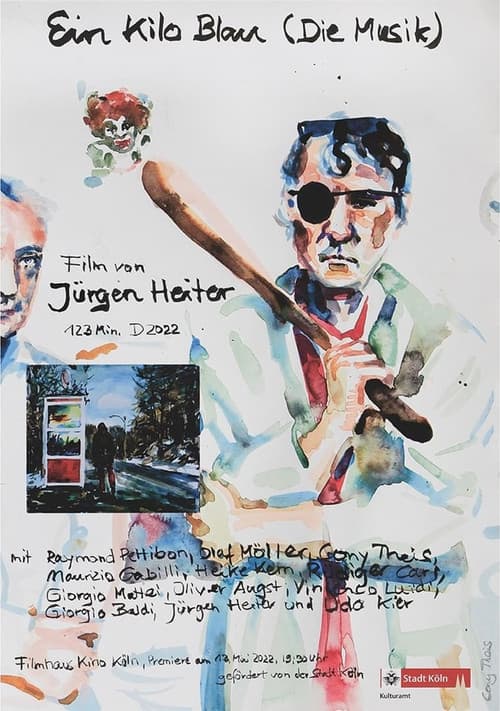 Ein Kilo Blau (Die Musik)
Film von
Jürgen Heiter
123 Min. D2022
mit Raymond Pettibon, Olaf Möller, Cony Theis,
Maurizio Gabilli, Heike Kern, Rüdiger Carl,
Giorgio Mattei, Oliver Augst, Vincenzo Luidi,
Giorgio Baldi, Jürgen Heiter und Udo Kier
Filmhaus Kino Köln, Premiere am 13. Mai 2022, 19,30 Uhr
gefördert von der Stadt Köln
Stadt Köln
Kulturamt
Cony Theis